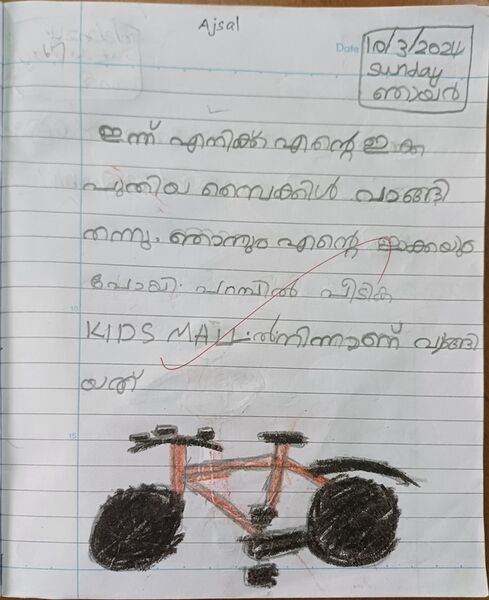 Ajsal
Date 10/3/2024
Sunday
ഞായർ
ഇന്ന് എനിക്ക് എന്റെ ഇക്ക
പുതിയ സൈക്കിൾ വാങ്ങി
തന്നു. ഞാനും എന്റെ ഇക്കയും
പോയി. പറമ്പിൽ പീടിക
KIDS MALL-ൽനിന്നാണ് വാങ്ങി
യത്
10
15